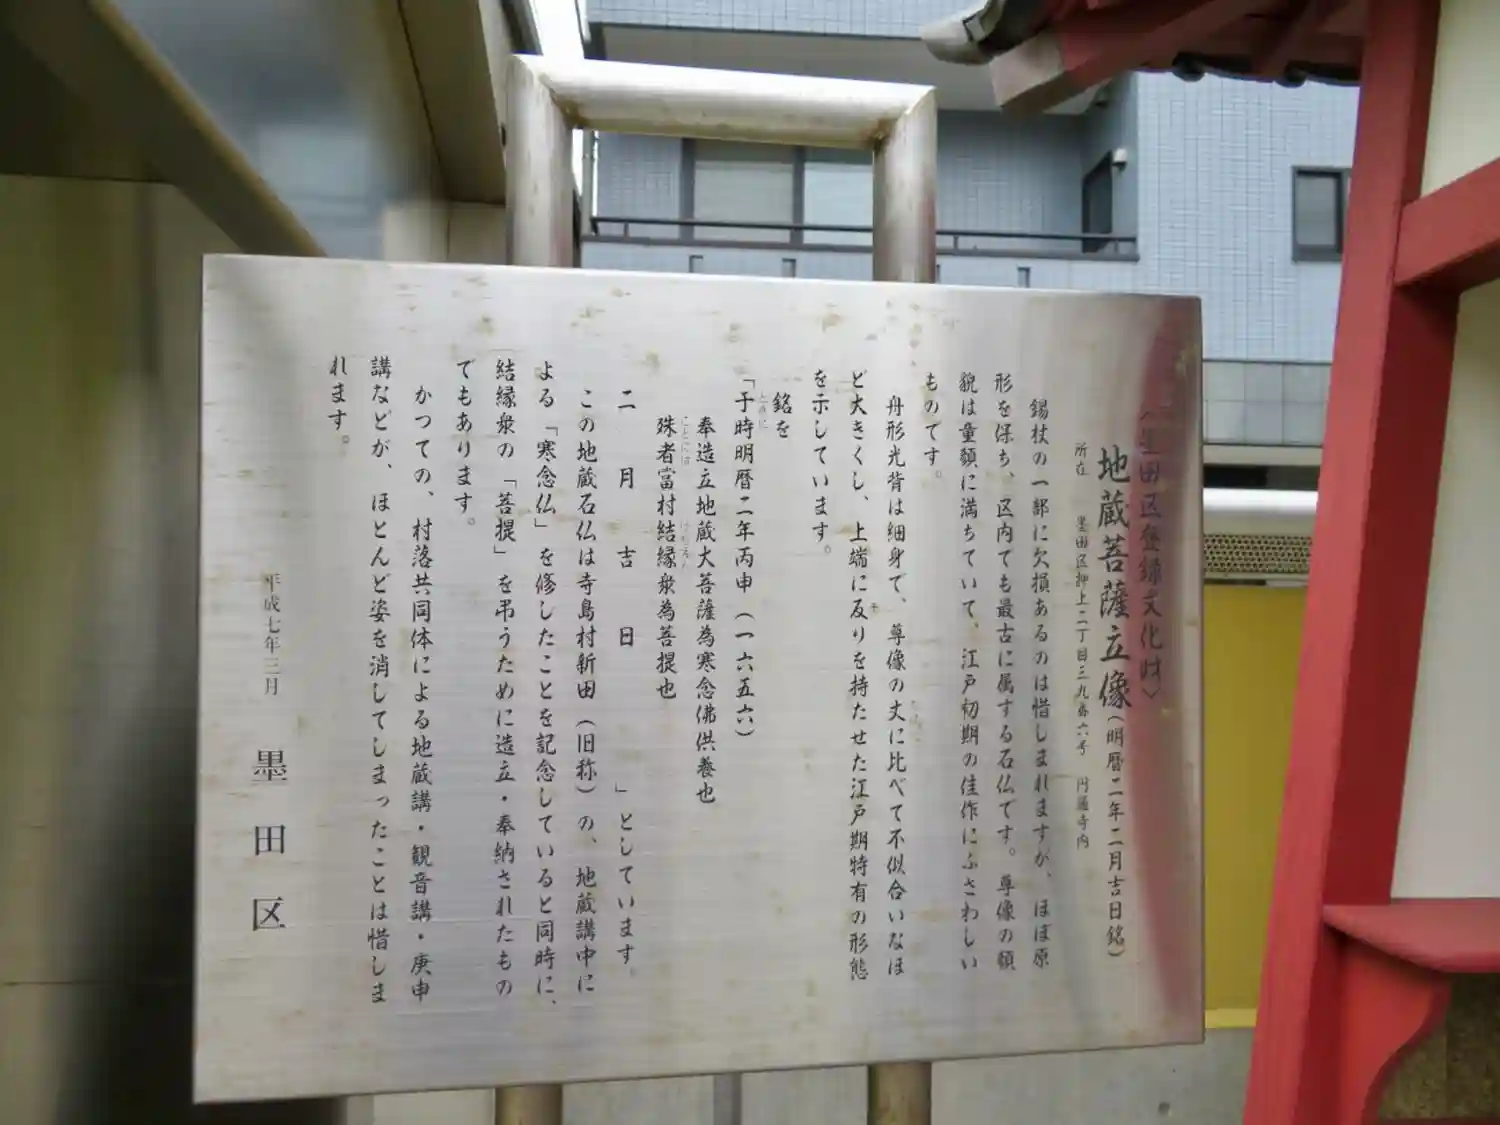 〈墨田区登録文化財〉
地蔵菩薩立像（明暦二年二月吉日銘）
所在　墨田区押上二丁目三九番六号　円通寺内
錫杖の一部に欠損あるのは惜しまれますが、ほぼ原
形を保ち、区内でも最古に属する石仏です。尊像の顔
貌は童顔に満ちていて、江戸初期の佳作にふさわしい
ものです。
舟形光背は細身で、尊像の丈に比べて不似合いなほ
ど大きくし、上端に反りを持たせた江戸期特有の形態
を示しています。
銘を
「于時明暦二年丙申（一六五六）
奉造立地蔵大菩薩為寒念佛供養也
殊者當村結縁衆為菩提也
二　月　吉　日　　　」としています。
この地蔵石仏は寺島村新田（旧称）の、地蔵講中に
よる「寒念仏」を修したことを記念していると同時に、
結縁衆の「菩提」を弔うために造立・奉納されたもの
でもあります。
かつての、村落共同体による地蔵講・観音講・庚申
講などが、ほとんど姿を消してしまったことは惜しま
れます。
平成七年三月　墨田区